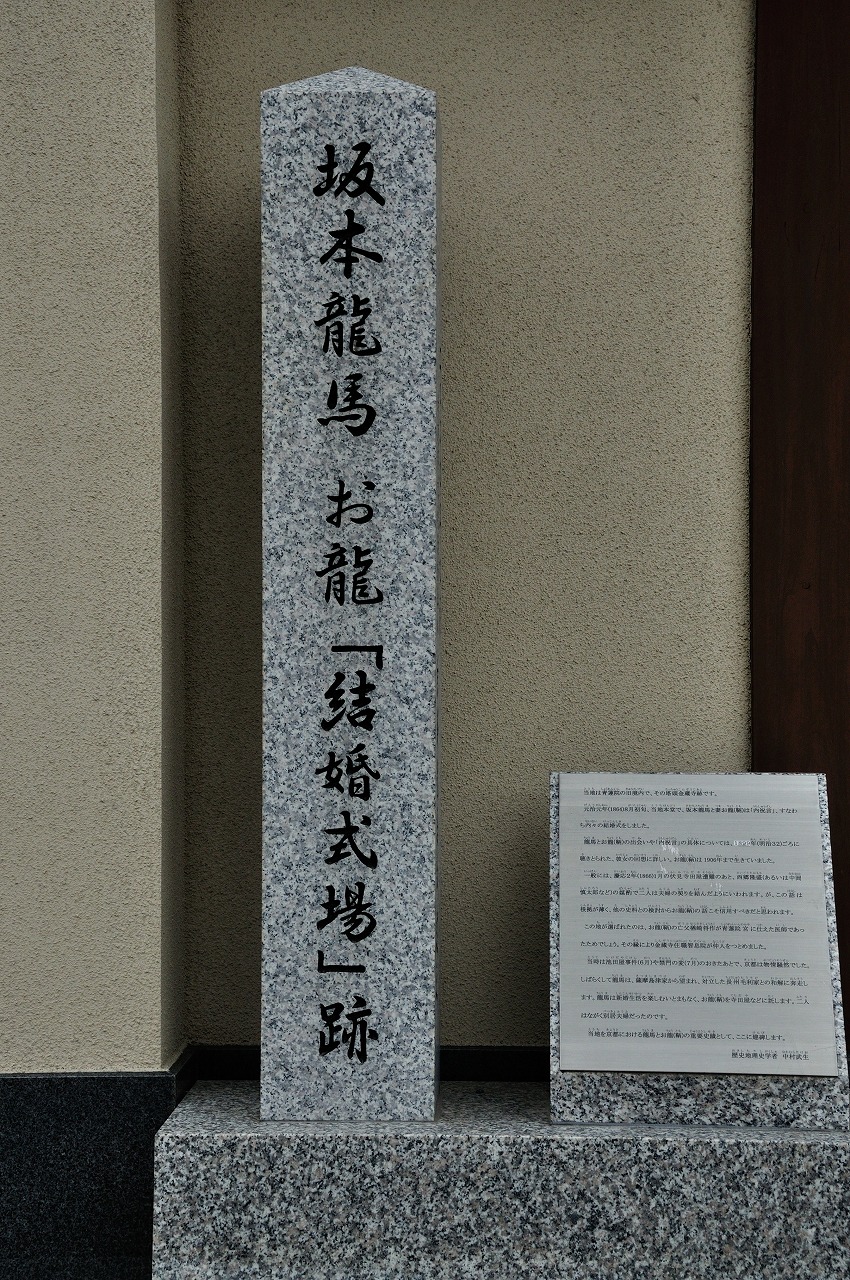 坂本龍馬 お龍「結婚式場」跡
当地は青蓮院の旧境内で、その塔頭金蔵寺跡です。
元治元年(1864)8月初旬、当地本堂で、坂本龍馬と妻お龍(鞆)は「内祝言」、すなわ
ち内々の結婚式をしました。
龍馬とお龍(鞆)の出会いや「内祝言」の具体については、1899年(明治32)ごろに
聴きとられた、彼女の回想に詳しい。お龍(鞆)は1906年まで生きていました。
一般には、慶応2年(1866)1月の伏見寺田屋遭難のあと、西郷隆盛(あるいは中岡
慎太郎など)の媒酌で二人は夫婦の契りを結んだようにいわれます。が、この話は
根拠が薄く、他の史料との検討からお龍(鞆)の話こそ信用すべきだと思われます。
この地が選ばれたのは、お龍(鞆)の亡父楢崎将作が青蓮院宮に仕えた医師であっ
たためでしょう。その縁により金蔵寺住職智息院が仲人をつとめました。
当時は池田屋事件(6月)や禁門の変(7月)のおきたあとで、京都は物情騒然でした。
しばらくして龍馬は、薩摩島津家から望まれ、対立した長州毛利家との和解に奔走し
ます。龍馬は新婚生活を楽しむいとまもなく、お龍(鞆)を寺田屋などに託します。二人
はながく別居夫婦だったのです。
当地を京都における龍馬とお龍(鞆)の重要史蹟として、ここに建碑します。
歴史地理史学者 中村武生